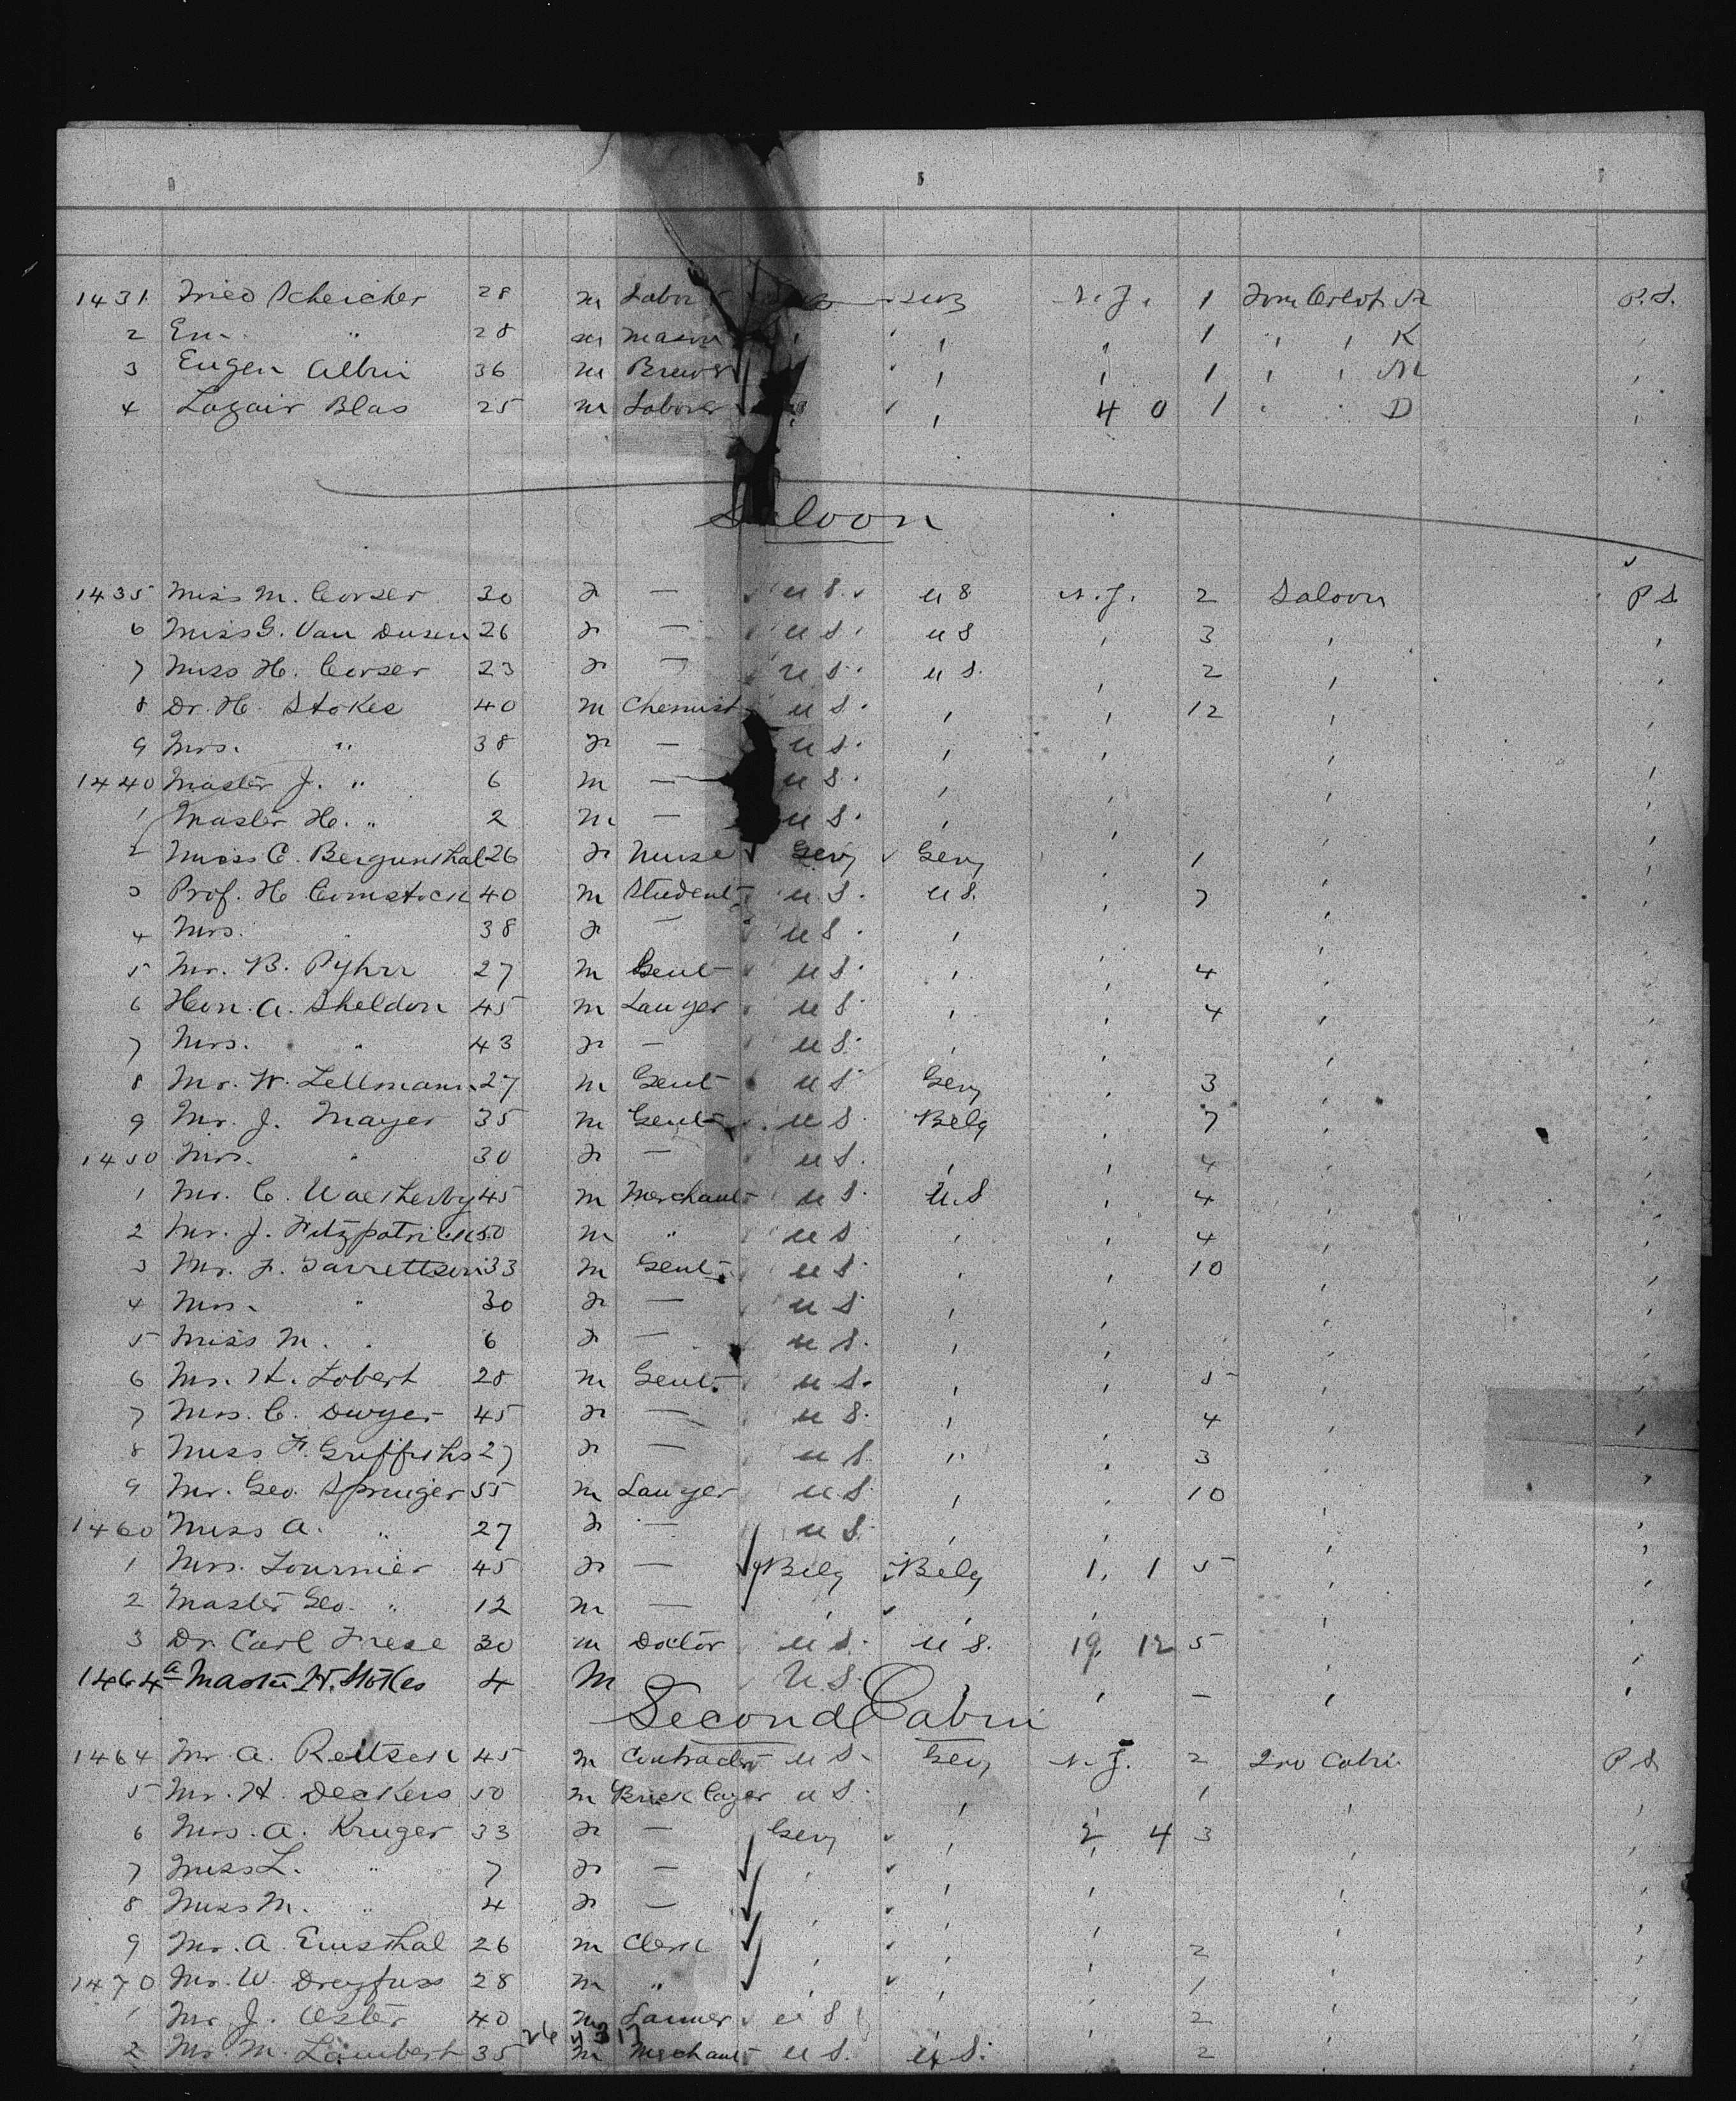 1431 Fried Scheicher 28 m Labor N.Y. 1 P.S.
2 " 28 m Mason ' ' ' 1 ' ' K '
3 Eugen Albin 36 m Brewer ' ' ' 1 ' ' M '
4 Lazair Blas 25 m Laborer ' ' 4 0 1 ' ' D '
Saloon
1435 Miss M. Corser 30 F — U S. U S N.Y. 2 Saloon P S
6 Miss G. Van Dusen 26 F — U S. U S ' 3 ' '
7 Miss H. Corser 23 F — U S. U S. ' 2 ' '
8 Dr. H. Stokes 40 m Chemist U S. ' ' 12 ' '
9 Mrs. " 38 F — U S. ' ' ' '
1440 Master J. " 6 m — U S. ' ' ' '
1 Master H. " 2 m — U S. ' ' ' '
2 Miss C. Bergunthal 26 F Nurse Gery Gery ' 1 ' '
3 Prof. H Comstock 40 m Student U S. U S. ' 7 ' '
4 Mrs. " 38 F — U S. ' ' ' '
5 Mr. B. Pyhrr 27 m Gent U S. ' ' 4 ' '
6 Hon. A. Sheldon 45 m Lawyer U S ' ' 4 ' '
7 Mrs. " 43 F — U S. ' ' ' '
8 Mr. W. Lellmann 27 m Gent U S Gery ' 3 ' '
9 Mr. J. Mayer 35 m Gent U S. Belg ' 7 ' '
1450 Mrs. " 30 F — U S. ' ' 4 ' '
1 Mr. C. Waetherby 45 m Merchant U S. U.S ' 4 ' '
2 Mr. J. Fitzpatrick 50 m " U S ' ' 4 ' '
3 Mr. F. Garrettson 33 m Gent U S ' ' 10 ' '
4 Mrs. " 30 F — U S ' ' ' '
5 Miss M. " 6 F — U S. ' ' ' '
6 Mr. H. Lobert 28 m Gent. U S. ' ' 5 ' '
7 Mrs. C. Dwyer 45 F — U S. ' ' 4 ' '
8 Miss F. Griffiths 27 F — U S. " ' 3 ' '
9 Mr. Geo. Springer 55 m Lawyer U S. ' ' 10 ' '
1460 Miss A. " 27 F — U S. ' ' ' '
1 Mrs. Fournier 45 F — Belg Belg 1. 1 5 ' '
2 Master Geo. " 12 m — ' ' ' ' '
3 Dr. Carl Frese 30 m Doctor U S. U S. 19. 12 5 ' '
1464 a Master H. Stokes 4 M U.S. ' ' — ' '
Second Cabin
1464 Mr A. Reitsek 45 m Contractor U S. Gery N.Y. 2 2nd Cabi. P S
5 Mr. H. Deckers 50 m Brick layer U S. ' ' 1 ' '
6 Mrs. A. Kruger 33 F — Gery ' 2 4 3 ' '
7 Miss L. " 7 F — ' ' ' ' '
8 Miss M. " 4 F — ' ' ' ' '
9 Mr. A. Emsthal 26 m Clerk ' ' ' 2 ' '
1470 Mr. W. Dreyfuss 28 m " ' ' ' 1 ' '
1 Mr. J. Oster 40 m Farmer U S ' ' 2 ' '
2 Mr. M. Lambert 35 m Merchant U S. U S. ' 2 ' '